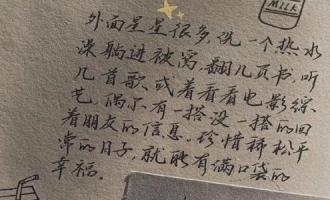 外面星星很多,洗一个热水
澡躺进被窝,翻几页书,听
几首歌,或看看看电影综
艺,偶尔有一搭没一搭的回
着朋友的信息。珍惜稀松平
常的日子,就能有满口袋的
幸福。
MILK